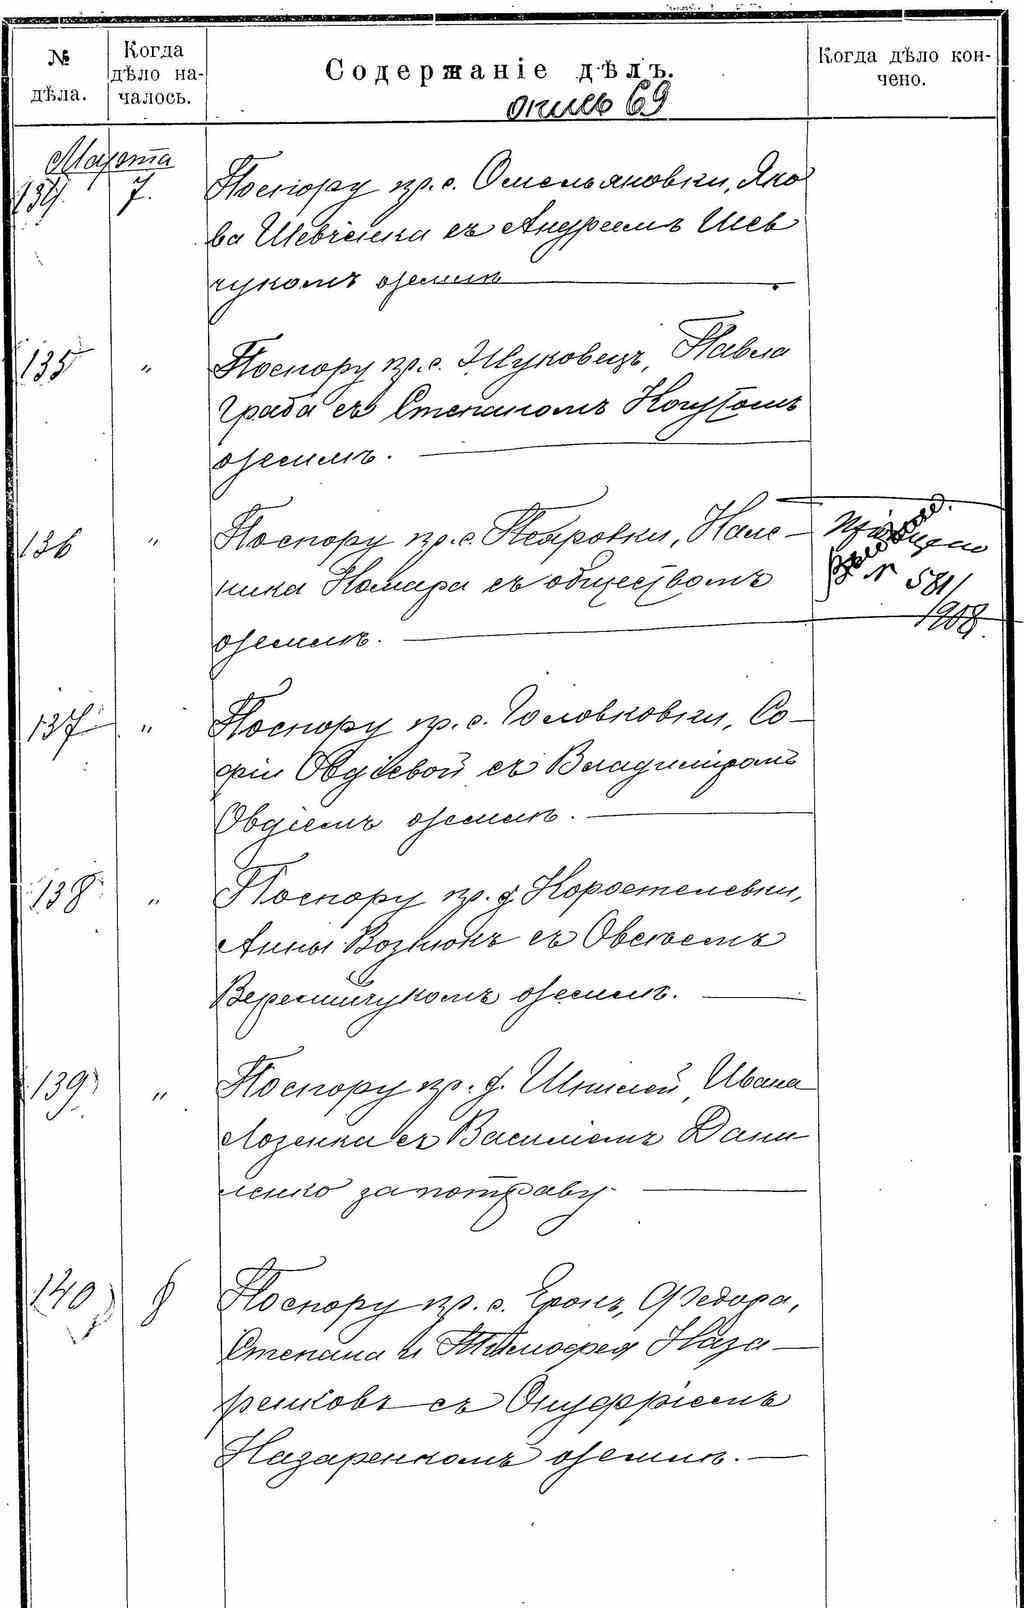 №
дѣла.
Когда
дѣло на-
чалось.
Содержаніе дѣлъ.
опись 69
Когда дѣло кон-
чено.
Марта
134. 7. По спору кр. с. Омельяновки, Яко
ва Шевченка съ Андреемъ Шев
чукомъ о землѣ
135 " По спору кр. с. Жуковецъ, Павла
Граба съ Степаномъ
о землѣ.
136 " По спору кр. с. Петровки,
ника Комара съ обществомъ
о землѣ.
№ 581/
1908.
137 " По спору кр. с. Головковки, Со-
фіи Овдіевой съ Владиміромъ
Овдіемъ о землѣ.
138 " По спору кр. д. Коростелевки,
Анны Вознюкъ съ Овсіемъ
Веремійчукомъ о землѣ.
139 " По спору кр. д. Шкилей, Ивана
Лозенка съ Василіемъ Дани
ленко за потраву.
140 8 По спору кр. с. Ерокъ, Федора,
Степана и Тимофея Наза-
ренковъ съ Онуфріемъ
Назаренкомъ о землѣ.